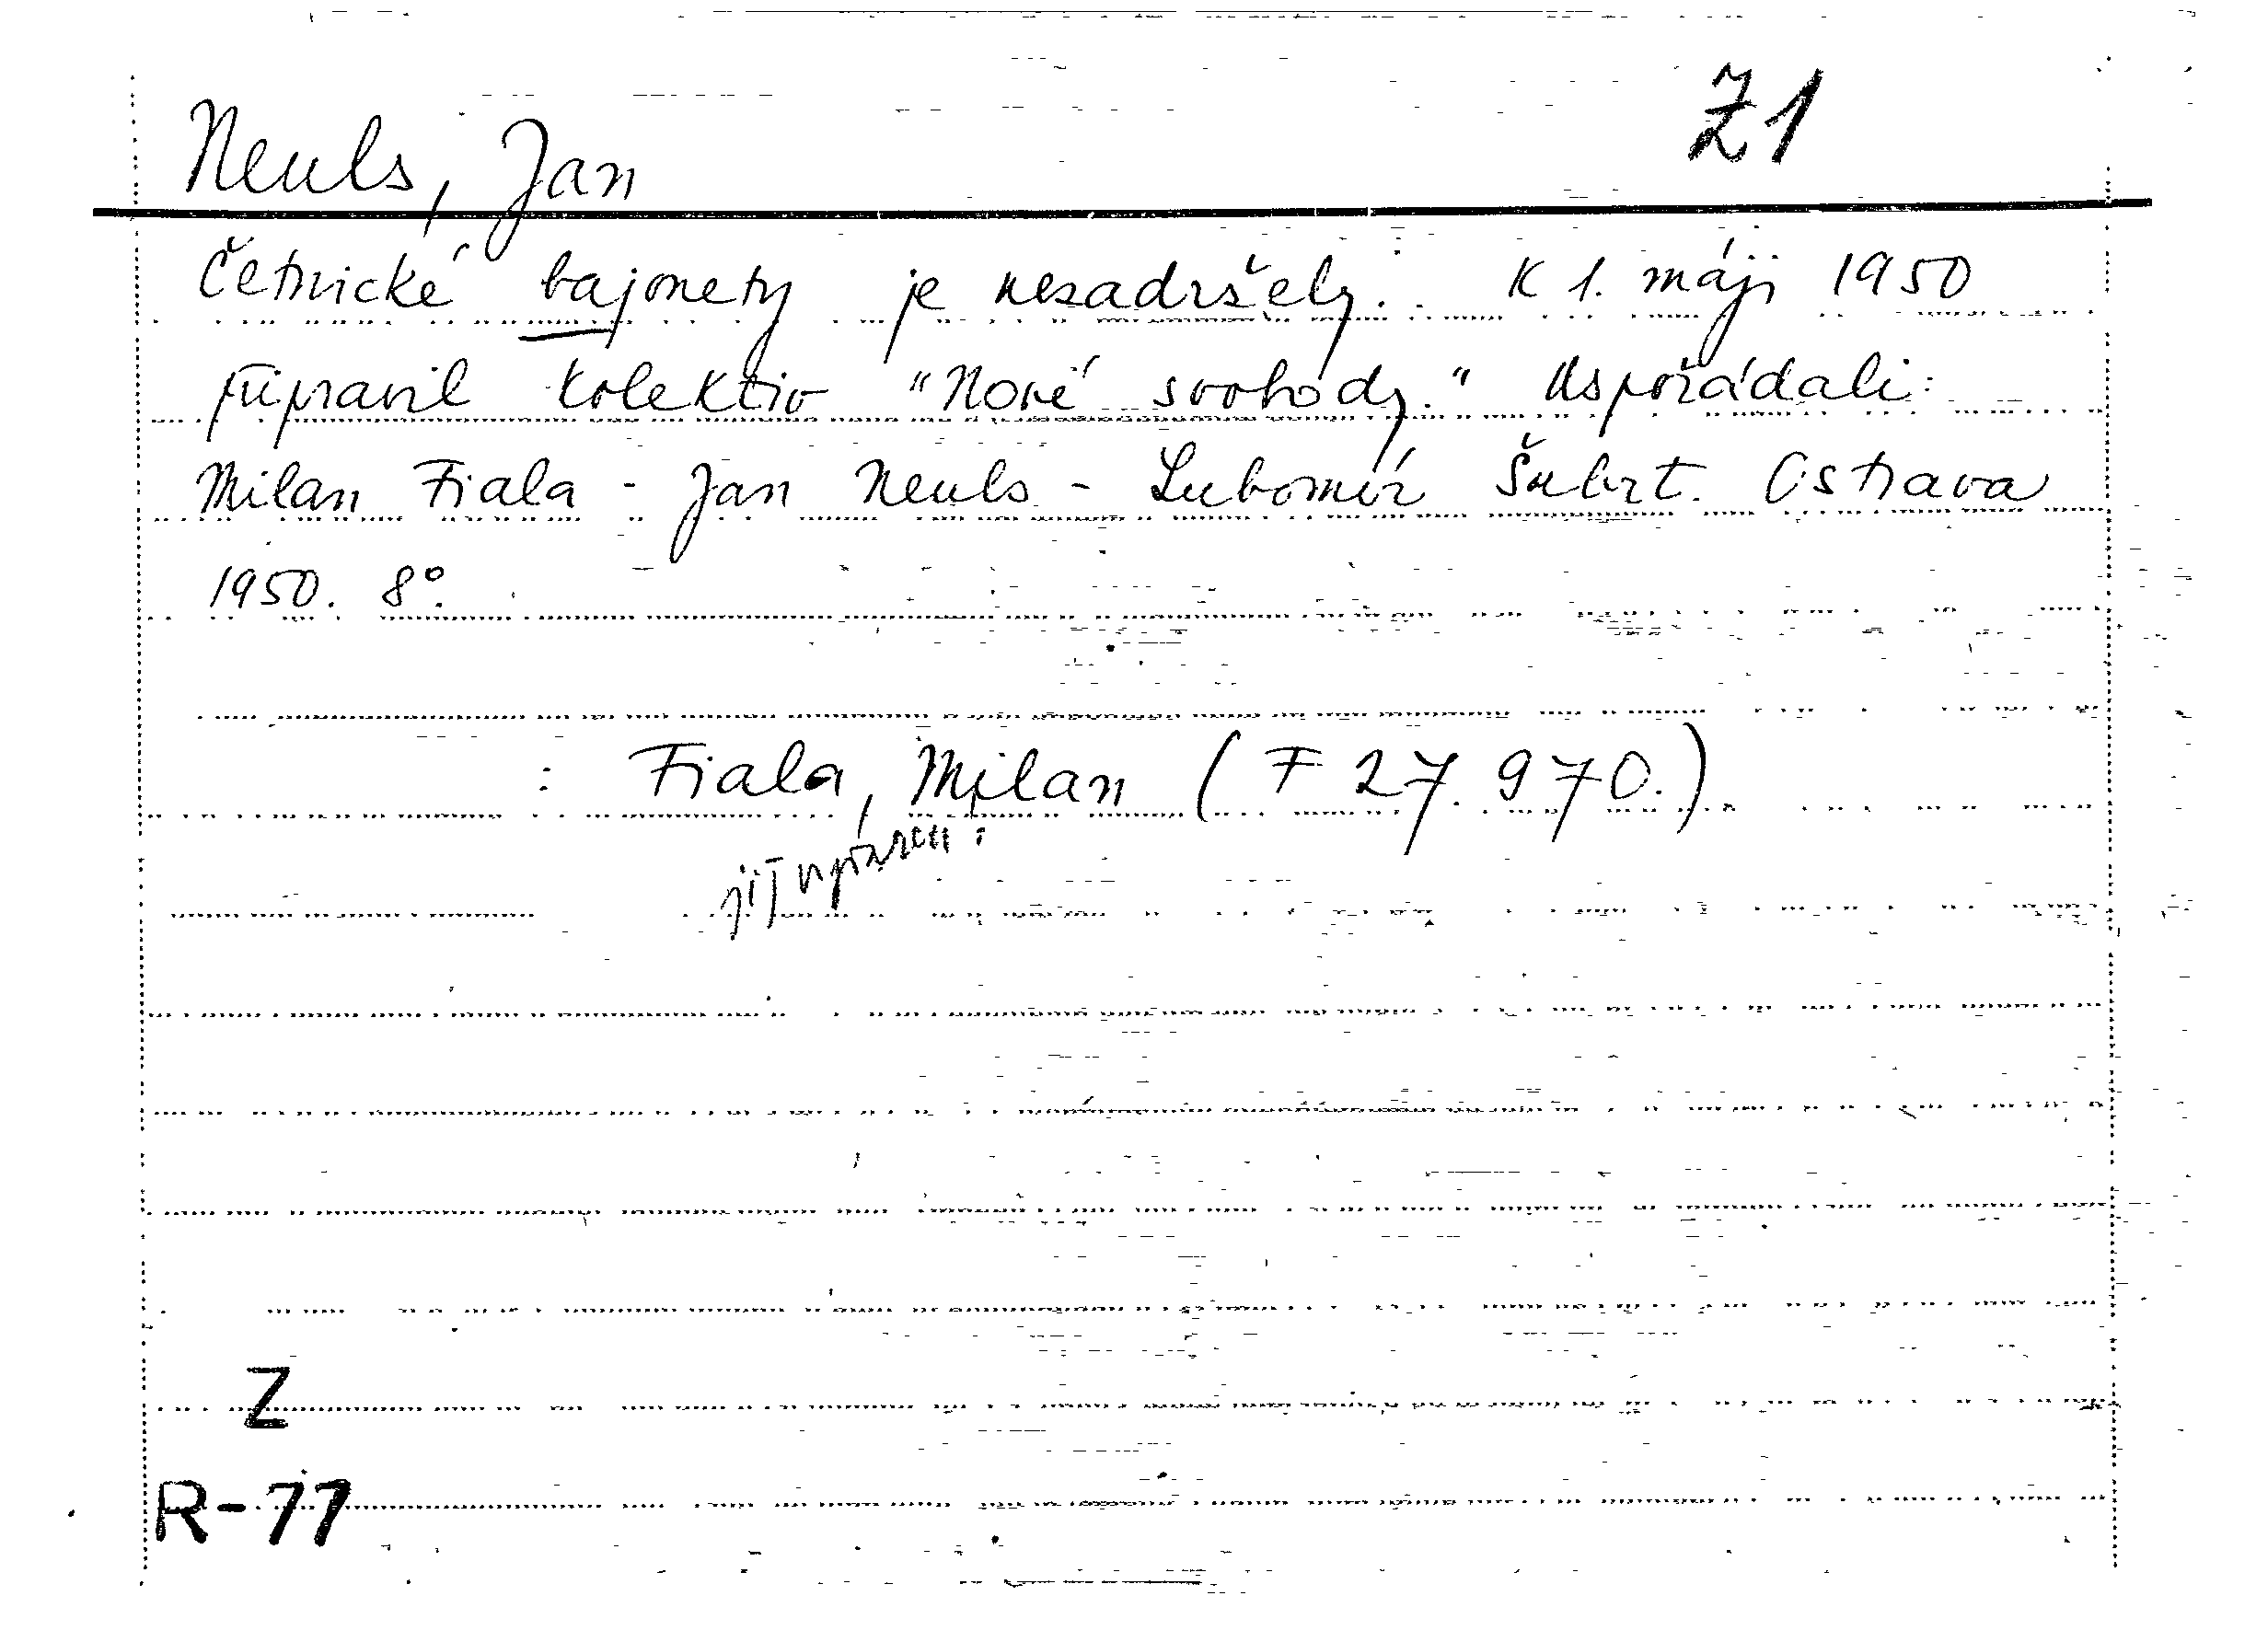 Neuls, Jan Z1
Četnické bajonety je nezadržely. K 1. máji 1950
připravil kolektiv "Nové svobody." Uspořádali:
Milan Fiala - Jan Neuls - Lubomír Šubrt. Ostrava
1950. 8°.
: Fiala, Milan (F 27.970.)
již
Z
R-77